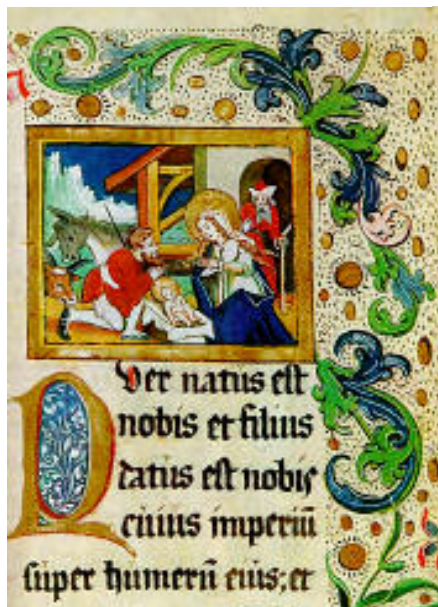 Puer natus est
nobis et filius
datus est nobis
cuius imperiū
super humerū eius; et